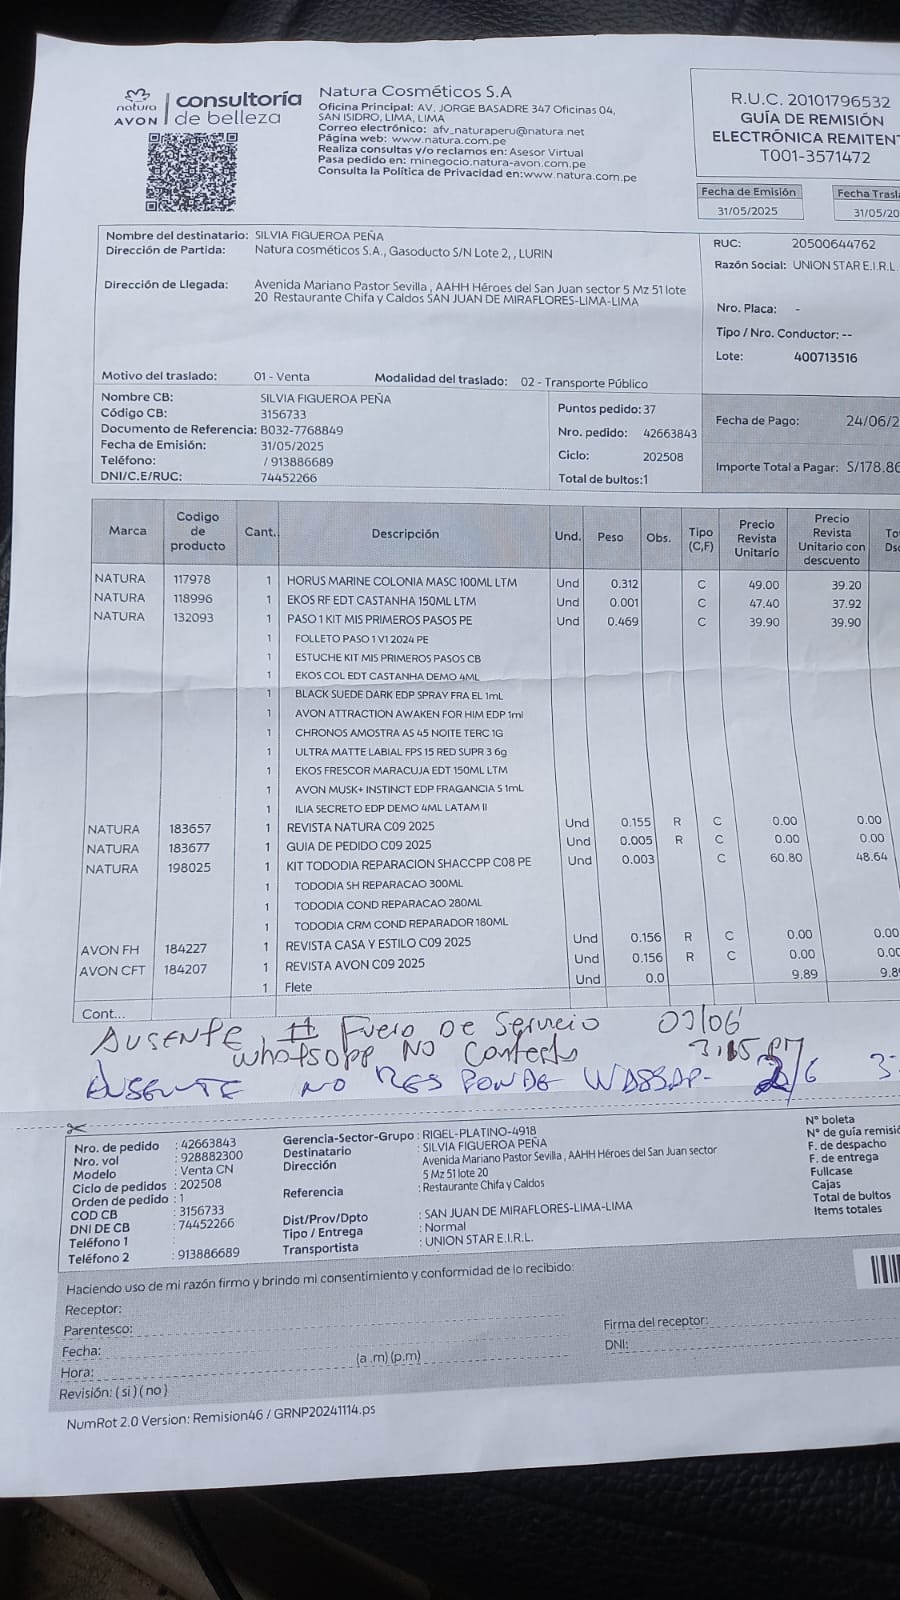 natura
AVON
consultoría
de belleza
Natura Cosméticos S.A
Oficina Principal: AV. JORGE BASADRE 347 Oficinas 04,
SAN ISIDRO, LIMA, LIMA
Correo electrónico: afv_naturaperu@natura.net
Página web: www.natura.com.pe
Realiza consultas y/o reclamos en: Asesor Virtual
Pasa pedido en: minegocio.natura-avon.com.pe
Consulta la Politica de Privacidad en:www.natura.com.pe
R.U.C. 20101796532
GUÍA DE REMISIÓN
ELECTRÓNICA REMITENT
T001-3571472
Fecha de Emisión Fecha Trasla
31/05/2025 31/05/20
Nombre del destinatario: SILVIA FIGUEROA PEÑA
Dirección de Partida: Natura cosméticos S.A., Gasoducto S/N Lote 2, , LURIN
Dirección de Llegada: Avenida Mariano Pastor Sevilla , AAHH Héroes del San Juan sector 5 Mz 51 lote
20 Restaurante Chifa y Caldos SAN JUAN DE MIRAFLORES-LIMA-LIMA
RUC: 20500644762
Razón Social: UNION STAR E.I.R.L.
Nro. Placa: -
Tipo / Nro. Conductor: --
Lote: 400713516
Motivo del traslado: 01 - Venta Modalidad del traslado: 02 - Transporte Público
Nombre CB: SILVIA FIGUEROA PEÑA
Código CB: 3156733
Documento de Referencia: B032-7768849
Fecha de Emisión: 31/05/2025
Teléfono: / 913886689
DNI/C.E/RUC: 74452266
Puntos pedido: 37
Nro. pedido: 42663843
Ciclo: 202508
Total de bultos:1
Fecha de Pago: 24/06/2
Importe Total a Pagar: S/178.86
Marca Codigo de producto Cant. Descripción Und. Peso Obs. Tipo (C,F) Precio Revista Unitario Precio Revista Unitario con descuento To Dsc
NATURA 117978 1 HORUS MARINE COLONIA MASC 100ML LTM Und 0.312 C 49.00 39.20
NATURA 118996 1 EKOS RF EDT CASTANHA 150ML LTM Und 0.001 C 47.40 37.92
NATURA 132093 1 PASO 1 KIT MIS PRIMEROS PASOS PE Und 0.469 C 39.90 39.90
1 FOLLETO PASO 1 V1 2024 PE
1 ESTUCHE KIT MIS PRIMEROS PASOS CB
1 EKOS COL EDT CASTANHA DEMO 4ML
1 BLACK SUEDE DARK EDP SPRAY FRA EL 1mL
1 AVON ATTRACTION AWAKEN FOR HIM EDP 1ml
1 CHRONOS AMOSTRA AS 45 NOITE TERC 1G
1 ULTRA MATTE LABIAL FPS 15 RED SUPR 3 6g
1 EKOS FRESCOR MARACUJA EDT 150ML LTM
1 AVON MUSK+ INSTINCT EDP FRAGANCIA S 1mL
1 ILIA SECRETO EDP DEMO 4ML LATAM II
NATURA 183657 1 REVISTA NATURA C09 2025 Und 0.155 R C 0.00 0.00
NATURA 183677 1 GUIA DE PEDIDO C09 2025 Und 0.005 R C 0.00 0.00
NATURA 198025 1 KIT TODODIA REPARACION SHACCPP C08 PE Und 0.003 C 60.80 48.64
1 TODODIA SH REPARACAO 300ML
1 TODODIA COND REPARACAO 280ML
1 TODODIA CRM COND REPARADOR 180ML
AVON FH 184227 1 REVISTA CASA Y ESTILO C09 2025 Und 0.156 R C 0.00 0.00
AVON CFT 184207 1 REVISTA AVON C09 2025 Und 0.156 R C 0.00 0.00
1 Flete Und 0.0 9.89 9.8
Cont...
AUSENTE # Fuera De Servicio 07/06
whatsapp NO Contesto
AUSENTE NO RESPONDE WASSAP- /6 3
Nro. de pedido : 42663843
Nro. vol : 928882300
Modelo : Venta CN
Ciclo de pedidos : 202508
Orden de pedido : 1
COD CB : 3156733
DNI DE CB : 74452266
Teléfono 1 :
Teléfono 2 : 913886689
Gerencia-Sector-Grupo : RIGEL-PLATINO-4918
Destinatario : SILVIA FIGUEROA PEÑA
Dirección : Avenida Mariano Pastor Sevilla , AAHH Héroes del San Juan sector
5 Mz 51 lote 20
Referencia : Restaurante Chifa y Caldos
Dist/Prov/Dpto : SAN JUAN DE MIRAFLORES-LIMA-LIMA
Tipo / Entrega : Normal
Transportista : UNION STAR E.I.R.L.
N° boleta
N° de guía remisió
F. de despacho
F. de entrega
Fullcase
Cajas
Total de bultos
Items totales
Haciendo uso de mi razón firmo y brindo mi consentimiento y conformidad de lo recibido:
Receptor:
Parentesco:
Fecha:
Hora: (a .m) (p.m)
Revisión: ( si ) ( no )
Firma del receptor:
DNI:
NumRot 2.0 Version: Remision46 / GRNP20241114.ps